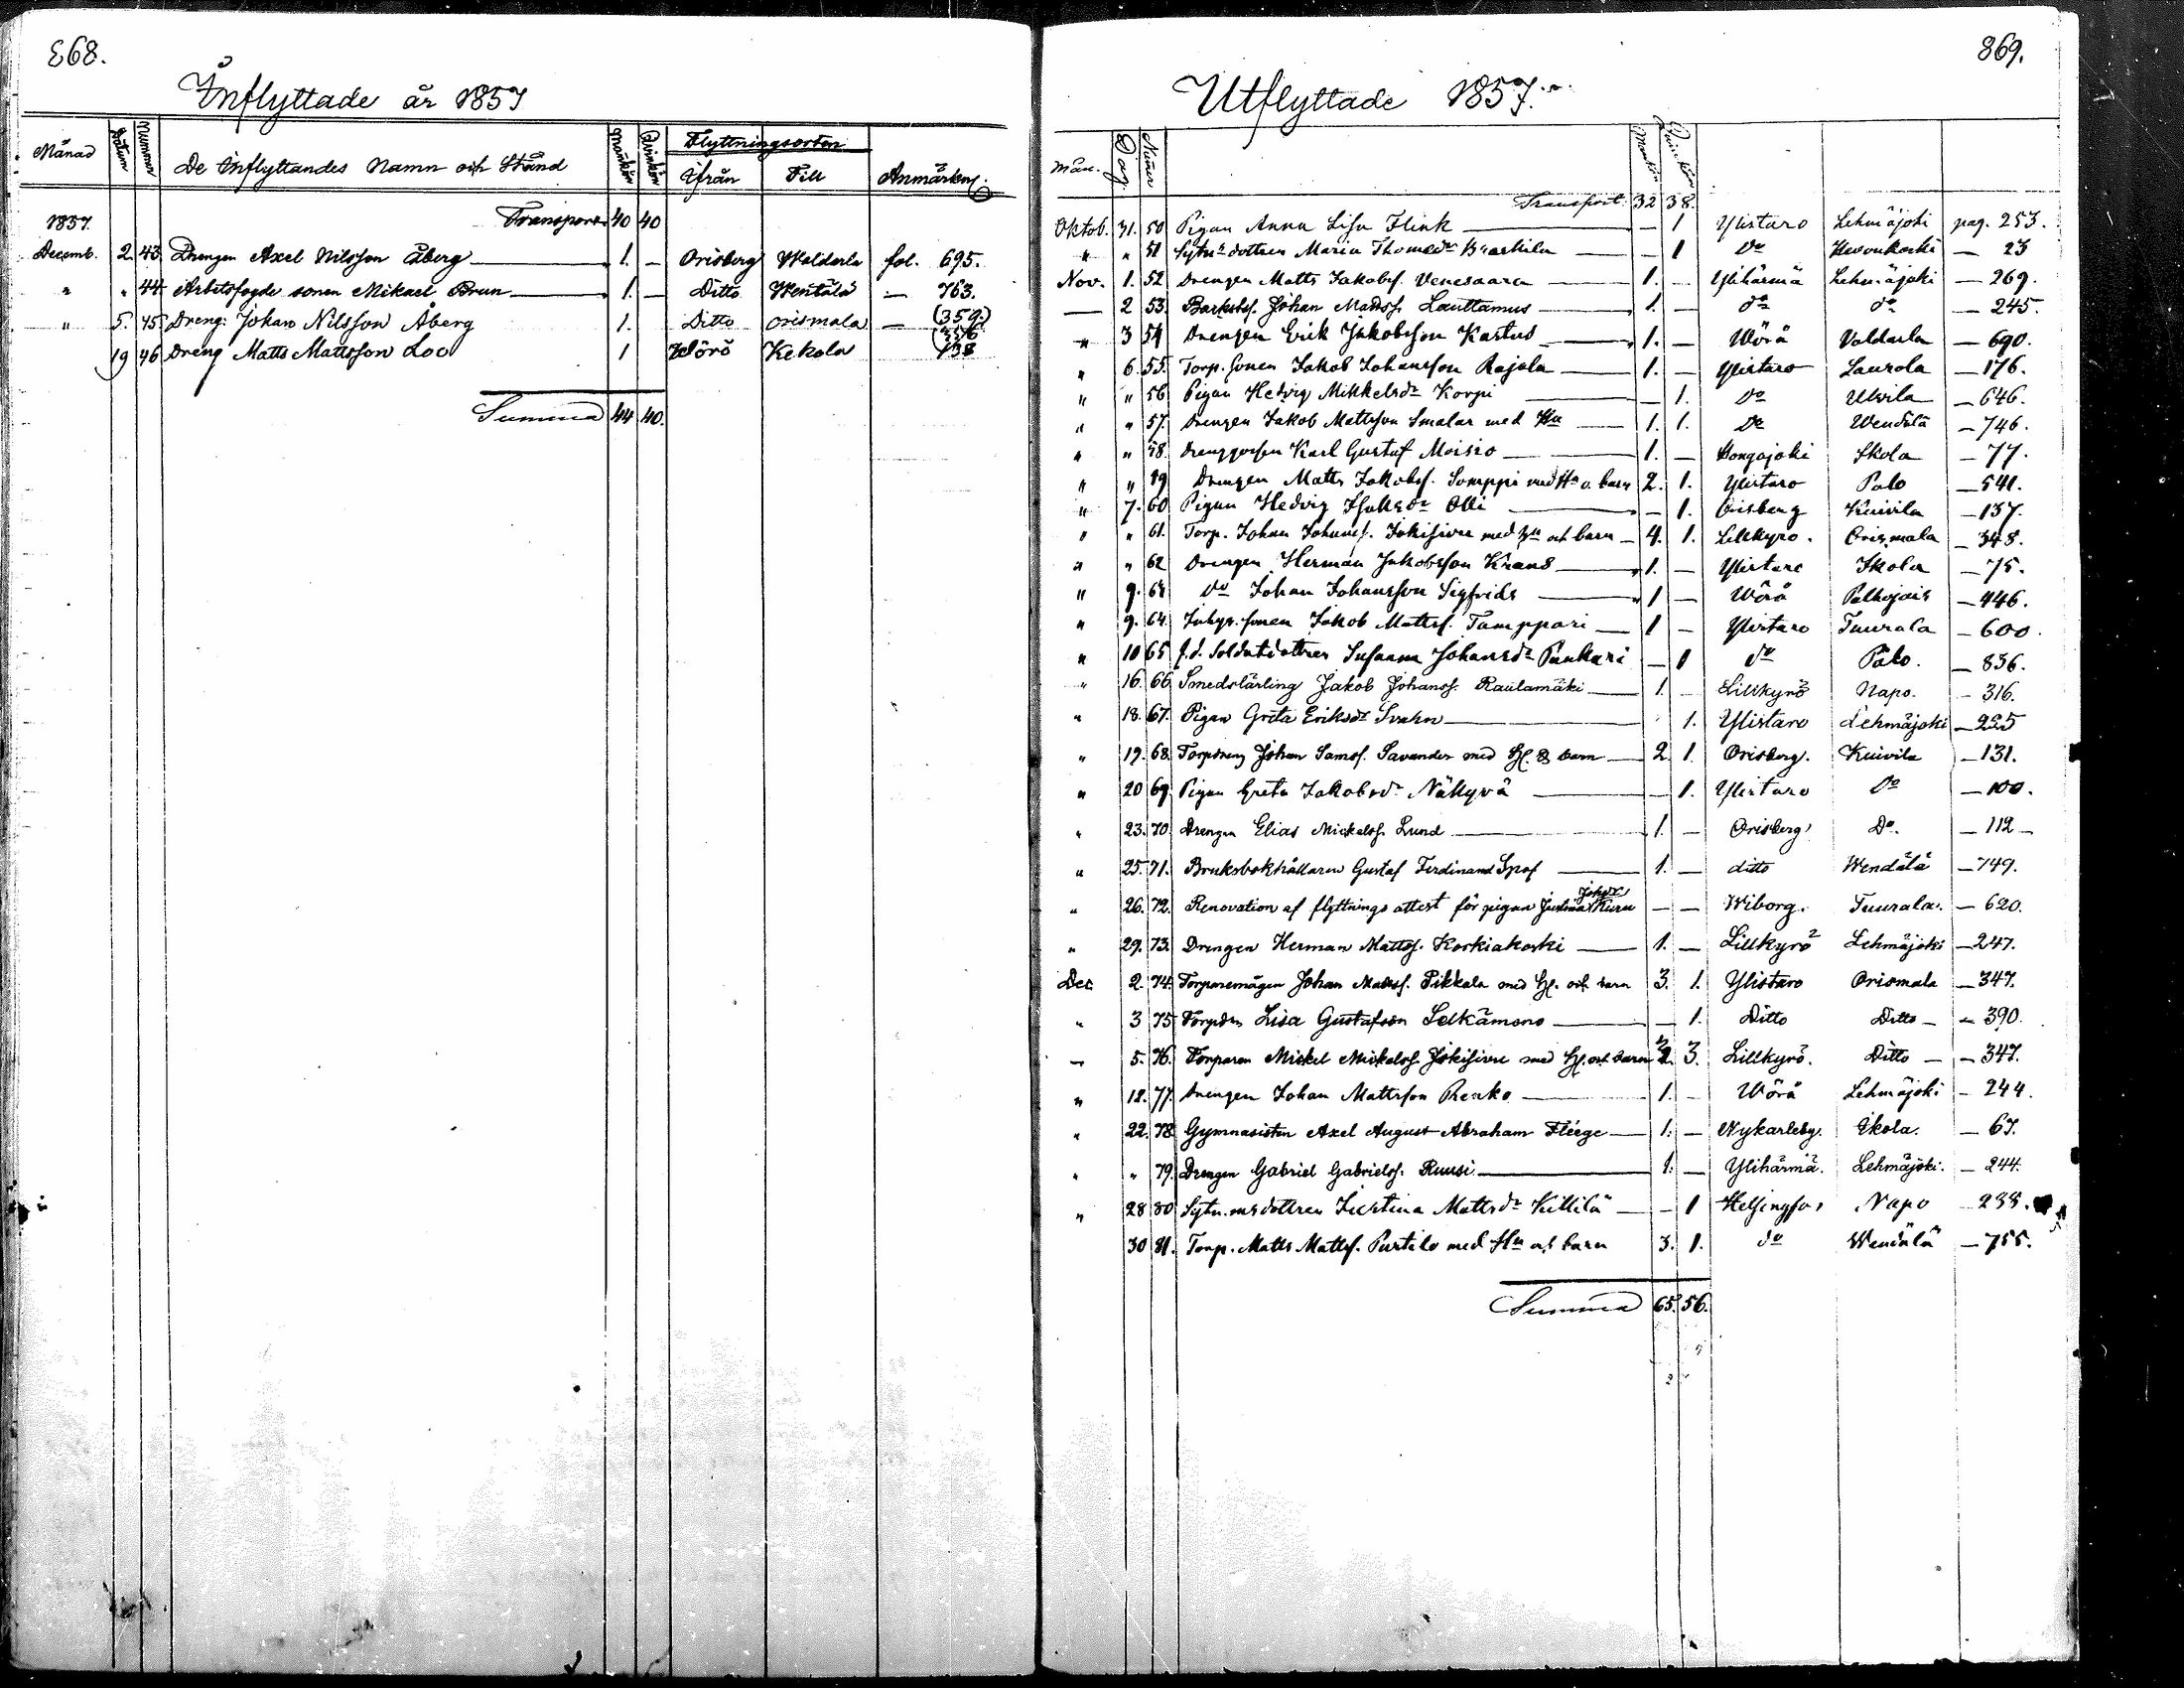 868.
Inflyttade år 1857
Månad Datum Nummer De Inflyttandes Namn och Stånd Mankön Qvinkön Flyttningsorten Ifrån Till Anmärkng.
1857. Transport 40 40
Decemb. 2. 43. Drengen Axel Nilsson Åberg — 1. — Orisberg Waldarla fol. 695.
" " 44. Arbetsfogde sonen Mikael Brun — 1. — Ditto Wentälä — 763.
" 5. 45. Dreng: Johan Nilsson Åberg 1. Ditto Orismala — (359.)
19 46 Dreng Matts Mattsson Loo 1 Wörå Kekola 138
Summa 44 40.
869.
Utflyttade 1857.
Mån. Dag Numer Mankön Qvinkön
Transport: 32 38.
Oktob. 31. 50 Pigan Anna Lisa Flink — — 1 Ylistaro Lehmäjoki pag. 253.
" " 51 Sytn:s dottren Maria Thomasdr — — 1 do — 23
Nov. 1. 52 Drengen Matts Jakobsf. Venesaara — 1. — Ylihärmä Lehmäjoki — 269.
— 2 53. Johan Mattsf. Lauttamus — 1. — do do — 245.
" 3 54 Drengen Erik Jakobsson Kastus — 1. — Wörå Valdarla — 690.
" 6. 55. Torp. sonen Jakob Johansson Rajala — 1. — Ylistaro Laurola — 176.
" " 56 Pigan Hedvig Mikkelsdr Korpi — — 1. do Ulvila — 646.
" " 57. Drengen Jakob Mattsson Smalar med Hu — 1. 1. do Wendälä — 746.
" " 58. Karl Gustaf Moisio — 1. — Kongajoki Ikola — 77.
" " 59 Drengen Matts Jakobsf. Somppi med Hu o. barn 2. 1. Ylistaro Palo — 541.
" 7. 60 Pigan Hedvig Olli — — 1. Orisberg Kuivila — 137.
" " 61. Torp. Johan Johansf. Jokisivu med Hu och barn — 4. 1. Lillkyro. Orismala — 348.
" " 62 Drengen Herman Jakobsson Krans — 1. — Ylistaro Ikola — 75.
" 9. 63 do Johan Johansson Sigfrids — 1 — Wörå Palhojais — 446.
" 9. 64. Inhys. sonen Jakob Mattsf. Tamppari — 1 — Ylistaro Tuurala — 600.
" 10 65 f.d. Soldatdottren Susanna Johansdr Punkari — 1 do Palo. — 836.
" 16. 66 Smedslärling Jakob Johansf. Rautamäki — 1. — Lillkyrö Napo. — 316.
" 18. 67. Pigan Greta Eriksdr Svahn — 1. Ylistaro Lehmäjoki — 225
" 19. 68. Torpdreng Johan Samsf. Savander med H. & barn — 2. 1. Orisberg. Kuivila — 131.
" 20 69 Pigan Greta Jakobsdr Näkyvä — — 1. Ylistaro Do — 100.
" 23. 70 Drengen Elias Mickelsf. Lund — 1. — Orisberg Do. — 112 —
" 25. 71. Bruksbokhållaren Gustaf Ferdinand Spof — 1. — ditto Wendälä — 749.
" 26. 72. Renovation af flyttnings attest för pigan Justina Johsdr Kuru — — Wiborg. Tuurala. — 620.
" 29. 73. Drengen Herman Mattsf. Koskiakoski — 1. — Lillkyrö Lehmäjoki — 247.
Dec 2. 74. Torparemågen Johan Mattsf. Pikkala med H. och barn 3. 1. Ylistaro Orismala — 347.
" 3 75 Lisa Gustafsdr Selkämono — — 1. Ditto Ditto — — 390.
— 5. 76. Torparen Mickel Mickelsf. Jokisivu med H. och barn 2. 3. Lillkyrö. Ditto — — 347.
" 12. 77. Drengen Johan Mattsson Renko — 1. — Wörå Lehmäjoki — 244.
" 22. 78 Gymnasisten Axel August Abraham Fleege — 1. — Nykarleby. Ikola. — 67.
" " 79. Drengen Gabriel Gabrielsf. Ruusi — 1. — Ylihärmä. Lehmäjoki. — 244.
" 28 80 Sytn.mrs dottren Kiertina Mattsdr Killilä — — 1 Helsingfors Napo — 288.
30 81. Torp. Matts Mattsf. Purtilo med Hu och barn 3. 1. do Wendälä — 755.
Summa 65. 56.